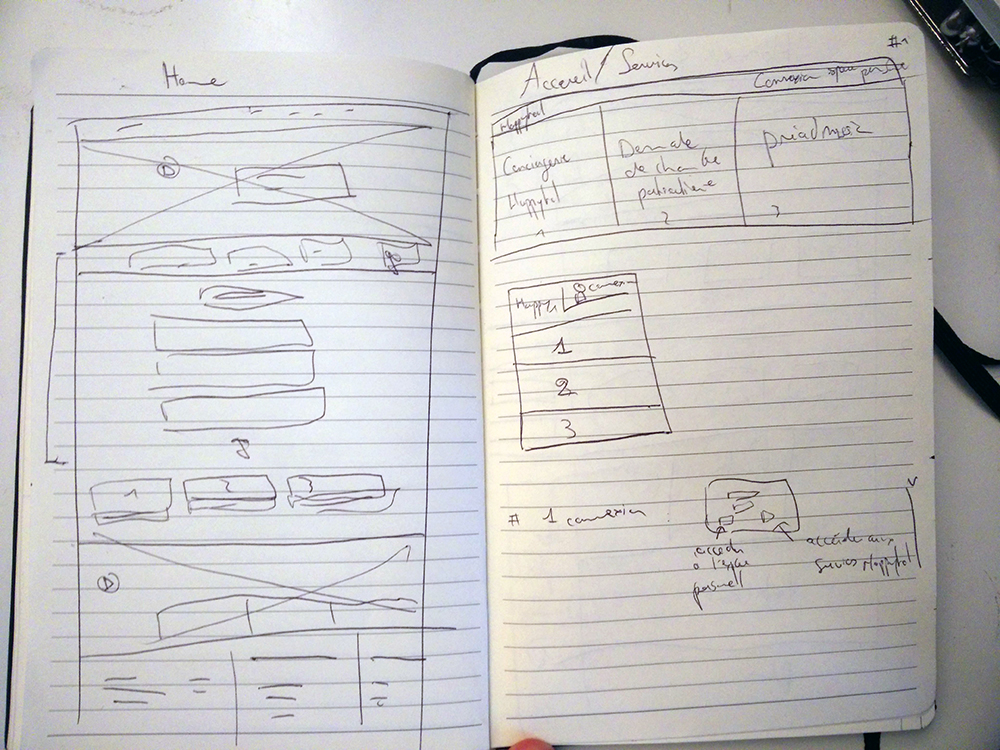 Home
1
2
3
Accueil / Services
#1
Connexion espace
Happytal
Conciergerie
Happytal
1
Demande
de chambre
particulière
2
3
Happy
connexion
1
2
3
# 1 connexion :
accéder
à l'espace
personnel
accéder aux
services Happytal